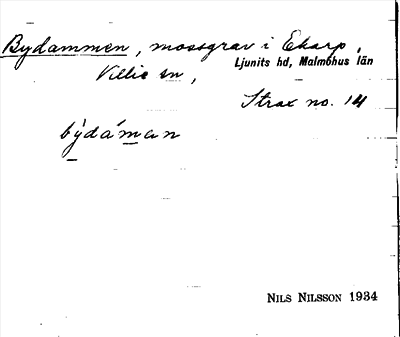 Bydammen, mossgrav i Ekarp,
Villie sn, Ljunits hd, Malmöhus län
Strax no. 14
býdáman
NILS NILSSON 1934